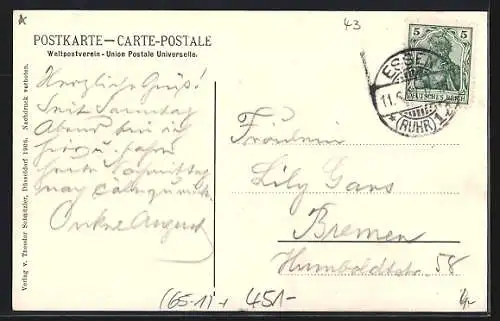 43
POSTKARTE — CARTE-POSTALE
Weltpostverein - Union Postale Universelle.
5 5
DEUTSCHES REICH
ESSEN
11.5.
(RUHR) 1
Herzliche Grüße!
Seit Sonntag
Abend bin ich
hier u. fahre
heute Nachmittag
nach
Onkel August
Fräulein
Lily Gans
Bremen
Humboldtstr. 58
Verlag v. Theodor Schmitzler, Düsseldorf 1906. Nachdruck verboten.
(65-11)+ 451-